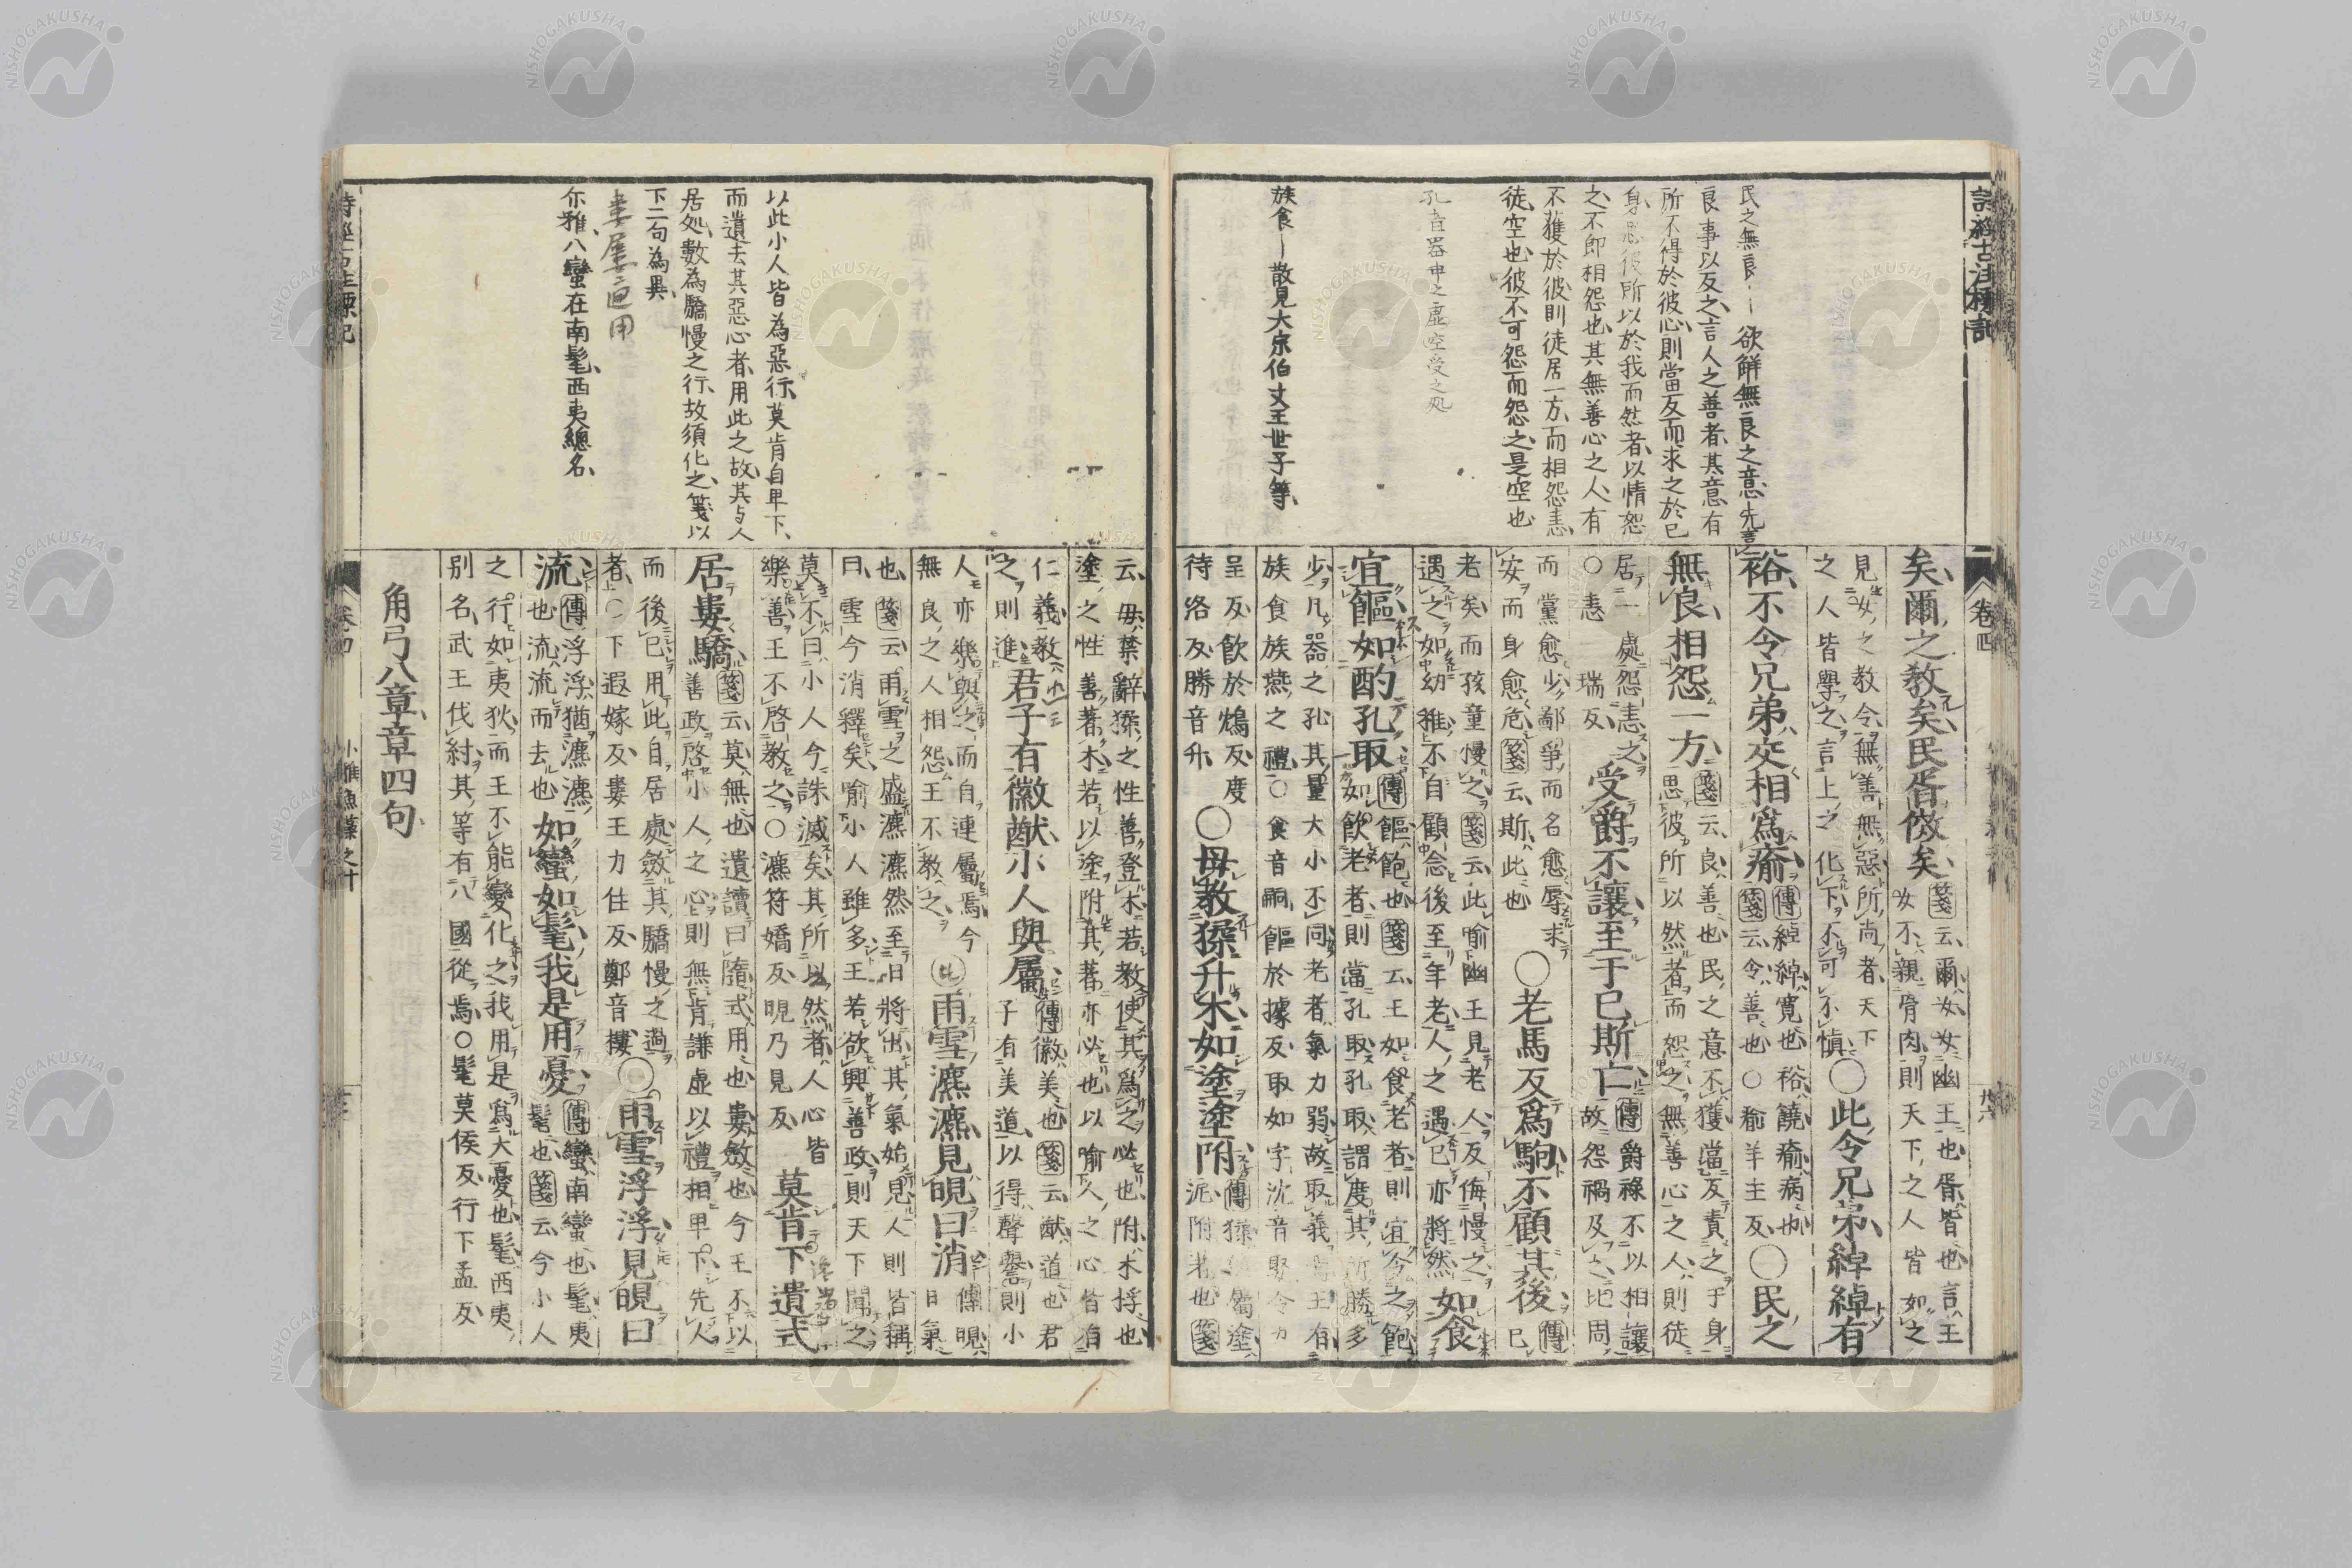 詩經古注標記
卷四
民之無良｜欲解無良之意先言
良事以反之言人之善者其意有
所不得於彼心則當反而求之於已
身思彼所以於我而然者以情恕
之不即相怨也其無善心之人有
不獲於彼則徒居一方而相怨恚
徒空也彼不可怨而怨之是空也
孔者器中之虛空受之処
族食｜散見大宗伯文王世子等
矣爾之教矣民胥傚矣
箋云爾女女幽王也胥皆也言王
女不親骨肉則天下之人皆如之
見女之教令無善無惡所尚者天下
之人皆學之言上之化下不可不慎
○此令兄弟綽綽有
裕不令兄弟交相爲瘉
傳綽綽寬也裕饒瘉病也
箋云令善也○瘉羊主反
○民之
無良相怨一方
箋云良善也民之意不獲當反責之于身
思彼所以然者而恕之無善心之人則徒
居一處怨恚之
○恚一瑞反
受爵不讓至于已斯亡
傳爵祿不以相讓
故怨禍及之比周
而黨愈少鄙爭而名愈辱求
安而身愈危箋云斯此也
○老馬反爲駒不顧其後
傳已
老矣而孩童慢之箋云此喻幽王見老人反侮慢之
遇之如幼稚不自顧念後至年老人之遇已亦將然
如食
宜饇如酌孔取
傳饇飽也箋云王如食老者則宜令之飽
如飲老者則當孔取孔取謂度其所勝多
少凡器之孔其量大小不同老者氣力弱故取義焉王有
族食族燕之禮○食音嗣饇於據反取如字沈音娶令力
呈反飲於鴆反度
待洛反勝音升
○毋教猱升木如塗塗附
傳猱猨屬塗
泥附著也箋
以此小人皆為惡行莫肯自卑下
而遺去其惡心者用此之故其与人
居処數為驕慢之行故須化之箋以
下二句為異
婁屢通用
尓雅八蠻在南髦西夷總名
云毋禁辭猱之性善登木若教使其爲之必也附木桴也
塗之性善著木若以塗附其著亦必也以喻人之心皆有
仁義教
之則進
君子有徽猷小人與屬
傳徽美也箋云猷道也君
子有美道以得聲譽則小
人亦樂與之而自連屬焉今
無良之人相怨王不教之
雨雪瀌瀌見晛曰消
傳晛
日氣
也箋云雨雪之盛瀌瀌然至日將出其氣始見人則皆稱
曰雪今消釋矣喻小人雖多王若欲興善政則天下聞之
莫不曰小人今誅滅矣其所以然者人心皆
樂善王不啓教之○瀌符嬌反晛乃見反
莫肯下遺式
居婁驕
箋云莫無也遺讀曰隨式用也婁斂也今王不以
善政啓小人之心則無肯謙虛以禮相卑下先人
而後已用此自居處斂其驕慢之過
者○下遐嫁反婁王力住反鄭音摟
○雨雪浮浮見晛曰
流
傳浮浮猶瀌瀌
也流流而去也
如蠻如髦我是用憂
傳蠻南蠻也髦夷
髦也箋云今小人
之行如夷狄而王不能變化之我用是爲大憂也髦西夷
別名武王伐紂其等有八國從焉○髦莫侯反行下孟反
角弓八章章四句
卷四
小雅魚藻之十